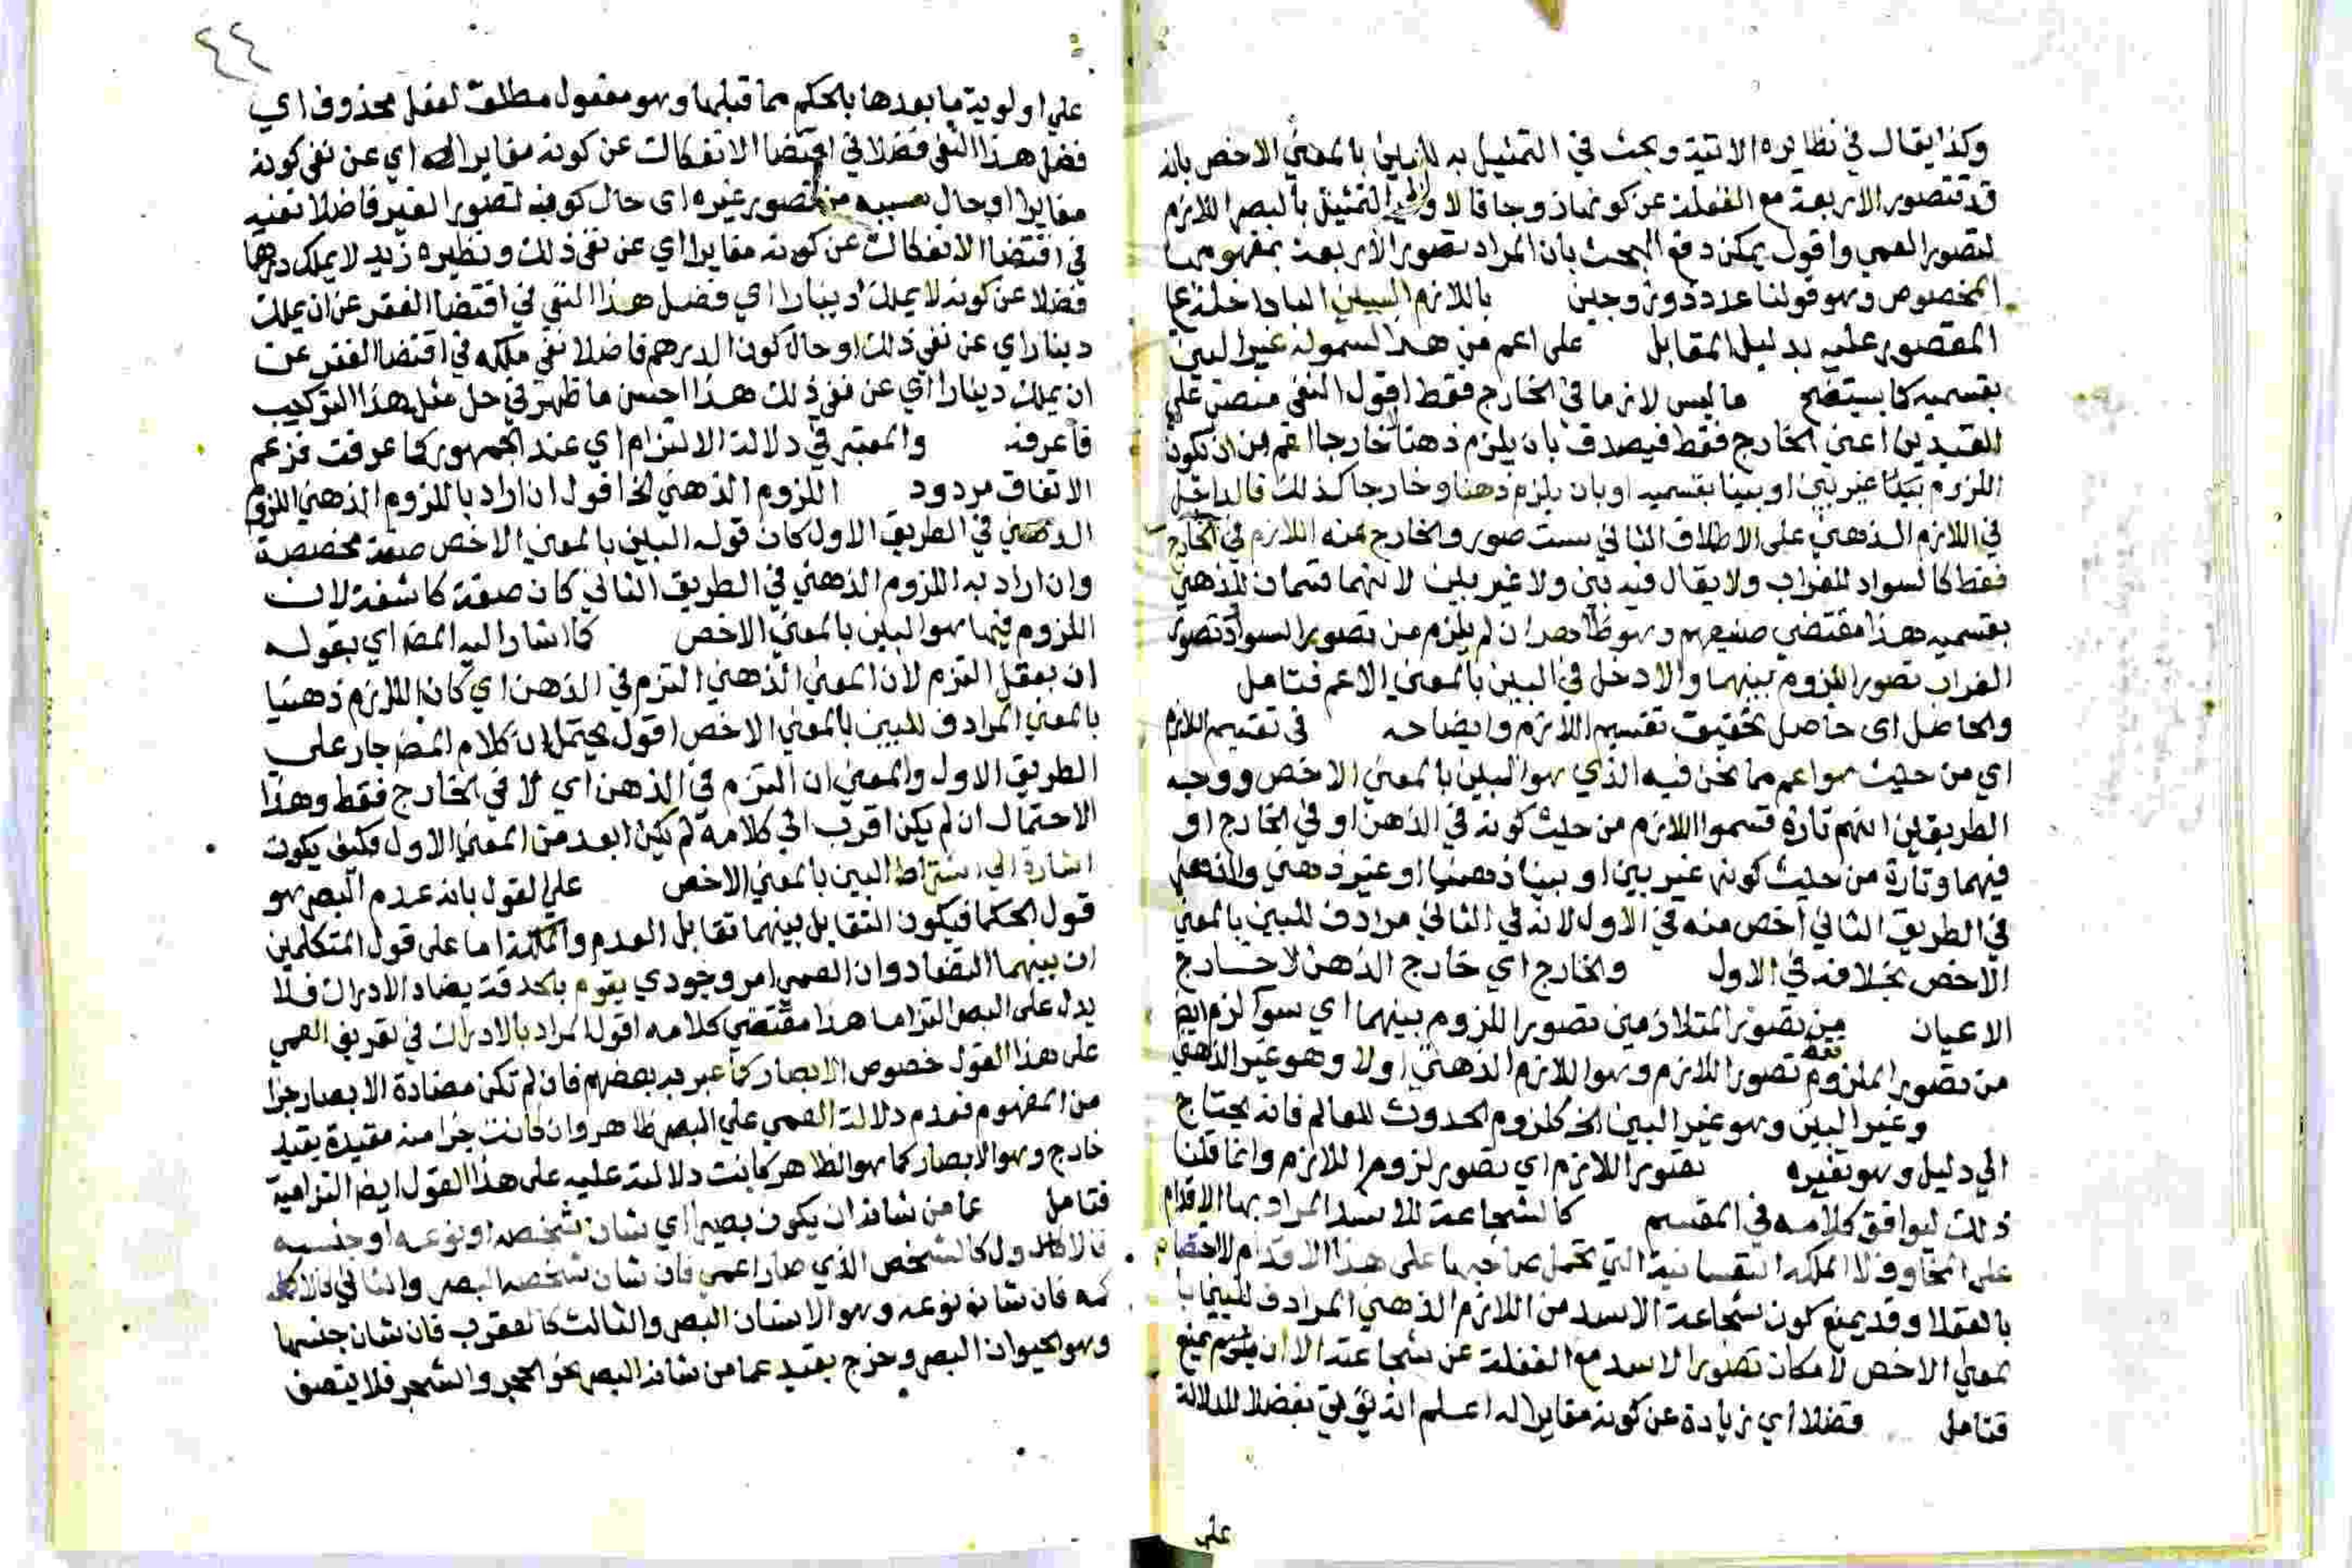 وكذا يقال في نظايره الاتية وبحث في التمثيل به للبين بالمعني الاخص بانه
قد تتصور الاربعة مع الغفلة عن كونها زوجا قالا والتمثيل بالبصر اللازم
لتصور العمي واقول يمكن دفع البحث بان المراد تصور الاربعة بمفهومها
المخصوص وهو قولنا عدد ذو زوجين باللازم البين البا داخلة علي
المقصور عليه بدليل المقابل علي اعم من هذا لشموله غير البين
بقسميه كما سيتضح ما ليس لازما في الخارج فقط اقول النفي منصب علي
القيدين اعني الخارج فقط فيصدق بان يلزم ذهنا خارجا اعم من ان تكون
اللزوم بينا غير بين او بينا بقسميه او بان يلزم ذهنا وخارجا كذلك فالداخل
في اللازم الذهني علي الاطلاق الثاني ست صور والخارج عنه اللازم في الخارج
فقط كالسواد للغراب ولا يقال فيه بين ولا غير بين لانهما قسمان للذهني
بقسميه هذا مقتضي صنيعهم وهو ظاهر ان لم يلزم من تصور السواد وتصور
الغراب تصور اللزوم بينهما والا دخل في البين بالمعني الاعم فتامل
والحاصل اي حاصل تحقيق تقسيم اللازم وايضاحه في تقسيم اللازم
اي من حيث هو اعم مما نحن فيه الذي هو البين بالمعني الاخص ووجه
الطريقين انهم تارة قسموا اللازم من حيث كونه في الذهن او في الخارج او
فيهما وتارة من حيث كونه غير بين او بينا ذهنيا او غير ذهني والذهني
في الطريق الثاني اخص منه في الاول لانه في الثاني مرادف للبين بالمعني
الاخص بخلافه في الاول والخارج اي خارج الذهن لا خارج
الاعيان من تصور المتلازمين تصور اللزوم بينهما اي سوا لزم ايض
من تصور الملزوم تصور اللازم وهو اللازم الذهني اولا وهو غير الذهني
وغير البين وهو غير البين الخ كلزوم الحدوث للعالم فانه يحتاج
الي دليل وهو تغيره بتصور اللازم اي تصور لزوم اللازم وانما قلنا
ذلك ليوافق كلامه في المقسم كالشجاعة للاسد المراد بها الاقدام
علي المخاوف لا الملكه النفسانية التي تحمل صاحبها علي هذا الاقدام لاختصاصها
بالعقلا وقد يمنع كون شجاعة الاسد من اللازم الذهني المرادف للبين با
لمعني الاخص لامكان تصور الاسد مع الغفلة عن شجاعته الا ان يمنع
فتامل فضلا اي زيادة عن كونه مقايرا له اعلم انه يؤتي بفضلا للدلالة
علي
٤٤
علي اولوية ما بعدها بالحكم مما قبلها وهو مفعول مطلق لفعل محذوف اي
فضل هذا النفي فضلا في اقتضا الانفكاك عن كونه مغايرا له اي عن نفي كونه
مغايرا او حال من تصور غيره اي حال كونه لتصور الغير فاضلا نفيه
في اقتضا الانفكاك عن كونه مغايرا اي عن نفي ذلك ونظيره زيد لا يملك درهما
فضلا عن كونه لا يملك دينارا اي فضل هذا النفي في اقتضا الفقر عن ان يملك
دينارا اي عن نفي ذلك او حال كون الدرهم فاضلا نفي ملكه في اقتضا الفقر عن
ان يملك دينارا اي عن نفي ذلك هذا احسن ما ظهر في حل مثل هذا التركيب
فاعرفه والمعتبر في دلالة الالتزام اي عند الجمهور كما عرفت فزعم
الاتفاق مردود اللزوم الذهني الخ اقول ان اراد باللزوم الذهني اللزوم
الذهني في الطريق الاول كان قوله البين بالمعني الاخص صفة مخصصة
وان اراد به اللزوم الذهني في الطريق الثاني كان صفة كاشفة لان
اللزوم فيها هو البين بالمعني الاخص كما اشار اليه المض اي بقوله
ان بعقل التزم لان المعني الذهني التزم في الذهن اي كان اللازم ذهنيا
بالمعني المرادف للبين بالمعني الاخص اقول يحتمل ان كلام المض جار علي
الطريق الاول والمعني ان التزم في الذهن اي لا في الخارج فقط وهذا
الاحتمال ان لم يكن اقرب الي كلامه لم يكن ابعد من المعني الاول فكيف يكون
اشارة الي اشتراط البين بالمعني الاخص علي القول بانه عدم البصر هو
قول الحكما فيكون التقابل بينهما تقابل العدم والملكة اما علي قول المتكلمين
ان بينهما التضاد وان العمي امر وجودي يقوم بالحدقة يضاد الادراك فلا
يدل علي البصر التزاما هذا مقتضي كلامه اقول المراد بالادراك في تعريف العمي
علي هذا القول خصوص الابصار كما عبر به بعضهم فان لم تكن مضادة الابصار جزا
من المفهوم فعدم دلالة العمي علي البصر ظاهر وان كانت جزا منه مقيدة بقيد
خارج وهو الابصار كما هو الظاهر كانت دلالته عليه علي هذا القول ايض التزامية
فتامل عما من شانه ان يكون بصيرا اي شان شخصه او نوعه او جنسه
فالاول كالشخص الذي صار اعمي فان شان شخصه البصر والثاني كالاكمه
فان شان نوعه وهو الانسان البصر والثالث كالعقرب فان شان جنسها
وهو الحيوان البصر وخرج بقيد عما من شانه البصر نحو الحجر والشجر فلا يتصف